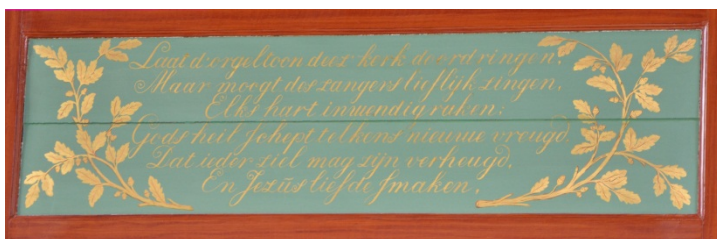 Laat d'orgeltoon deez' kerk doordringen,
Maar moogt des zangers lieflijk zingen,
Elks hart inwendig raken:
Gods heil schept telkens nieuwe vreugd
Dat ieder ziel mag zijn verheugd.
En Jezus liefde smaken,